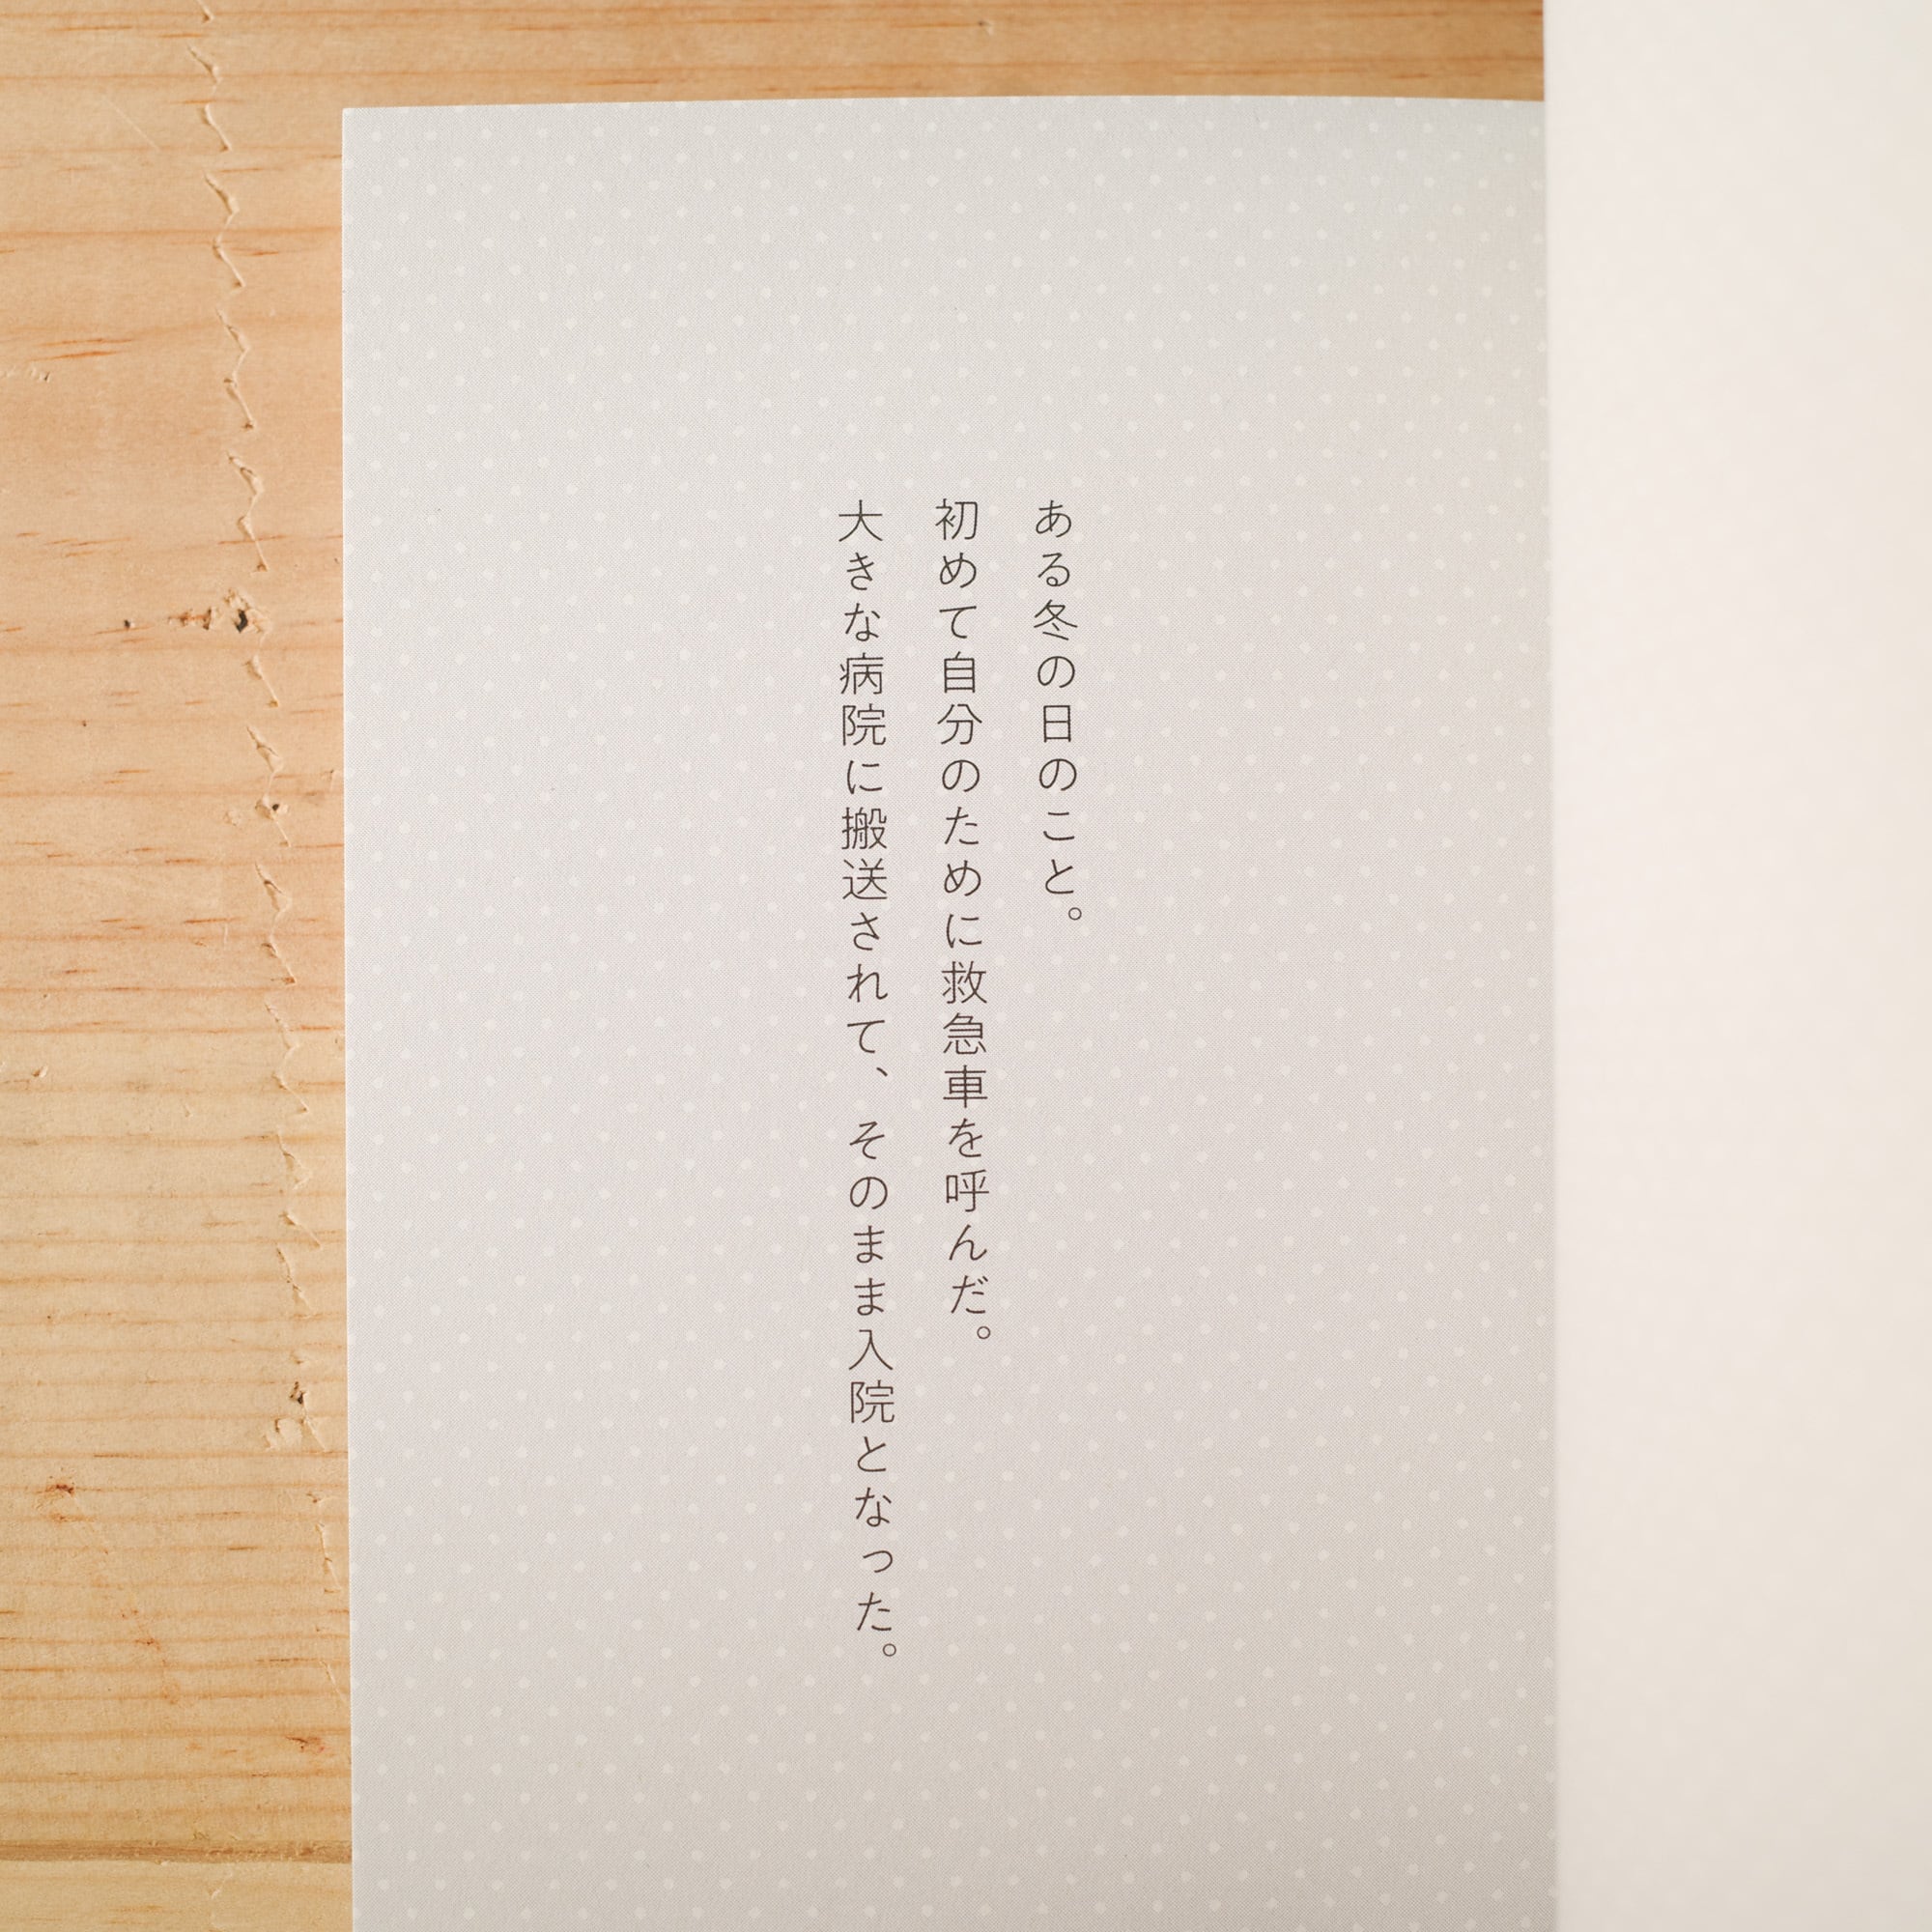 ある冬の日のこと。
初めて自分のために救急車を呼んだ。
大きな病院に搬送されて、そのまま入院となった。